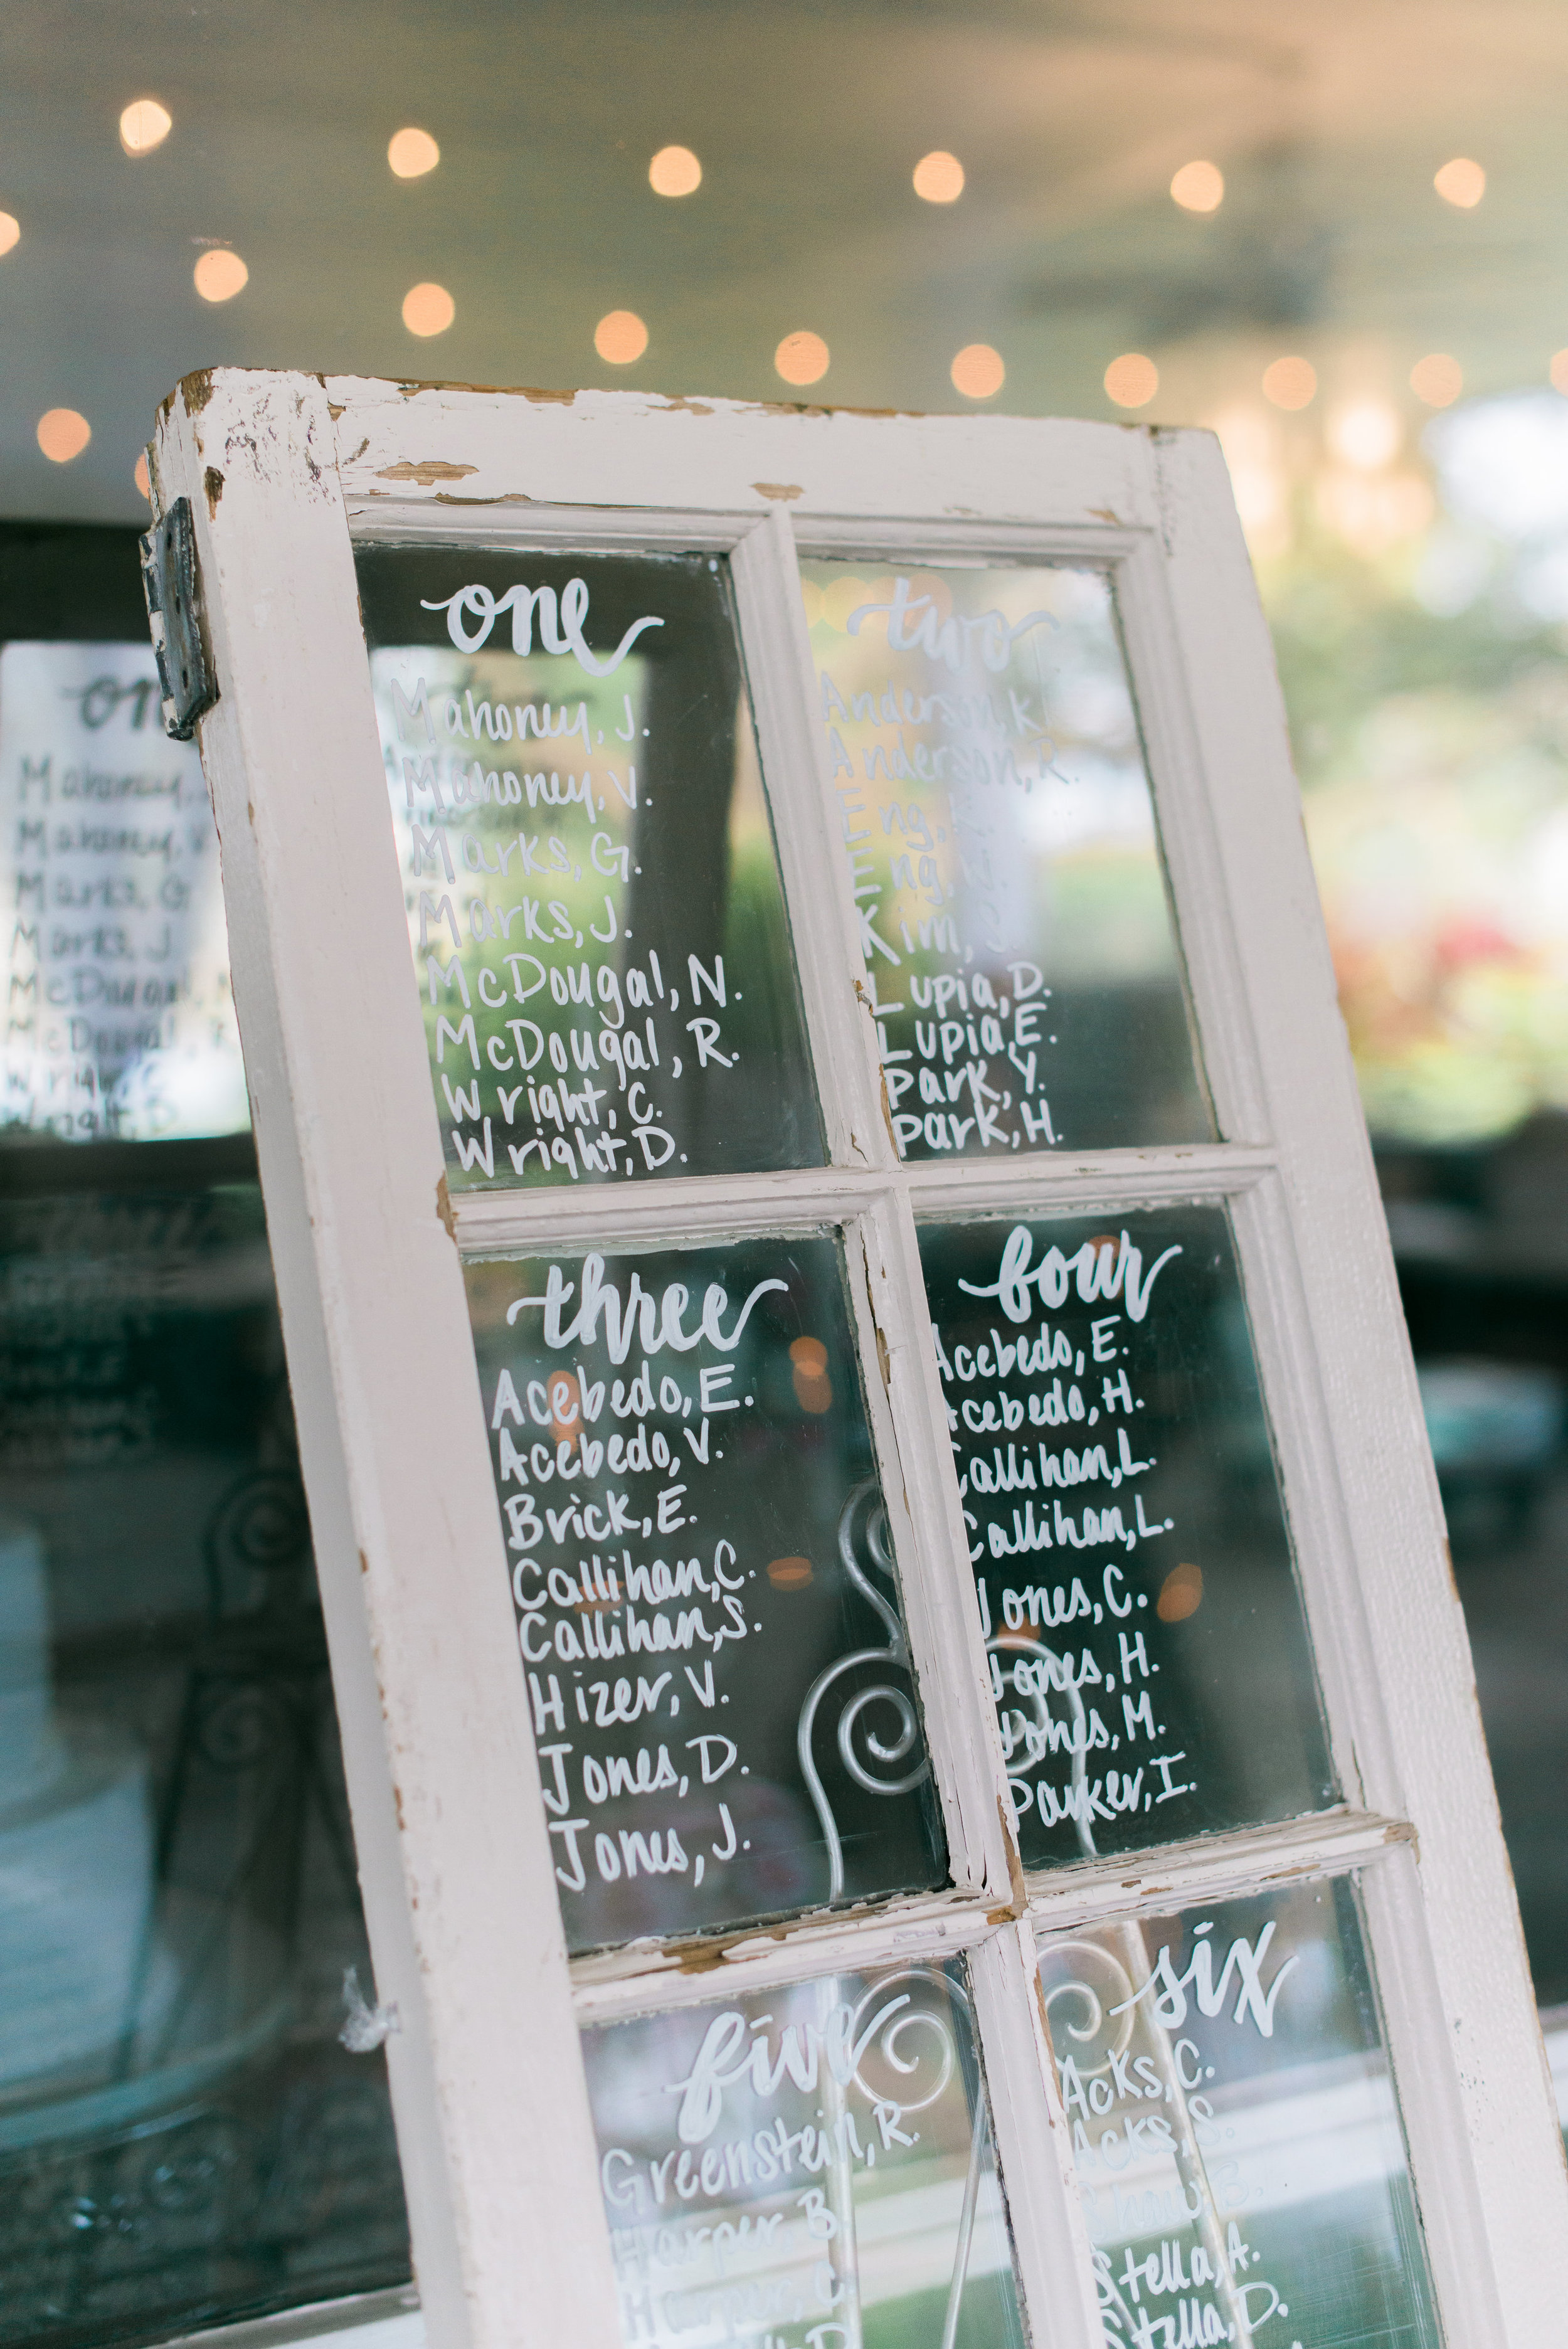 one
Mahoney, J.
Mahoney, V.
Marks, G.
Marks, J.
McDougal, N.
McDougal, R.
Wright, C.
Wright, D.
two
Anderson, K
Anderson, R.
Eng, K.
Eng, N.
Kim, S.
Lupia, D.
Lupia, E.
Park, Y.
Park, H.
three
Acebedo, E.
Acebedo, V.
Brick, E.
Callihan, C.
Callihan, S.
Hizer, V.
Jones, D.
Jones, J.
four
Acebedo, E.
Acebedo, H.
Callihan, L.
Callihan, L.
Jones, C.
Jones, H.
Jones, M.
Parker, I.
five
Greenstein, R.
Harper, B.
Harper, C.
six
Acks, C.
Acks, S.
Stella, A.
Stella, D.
on
Mahoney,
Mahoney, V
Marks, G
Marks, J
McDougal, N
McDougal,
Wright, C
Wright, D